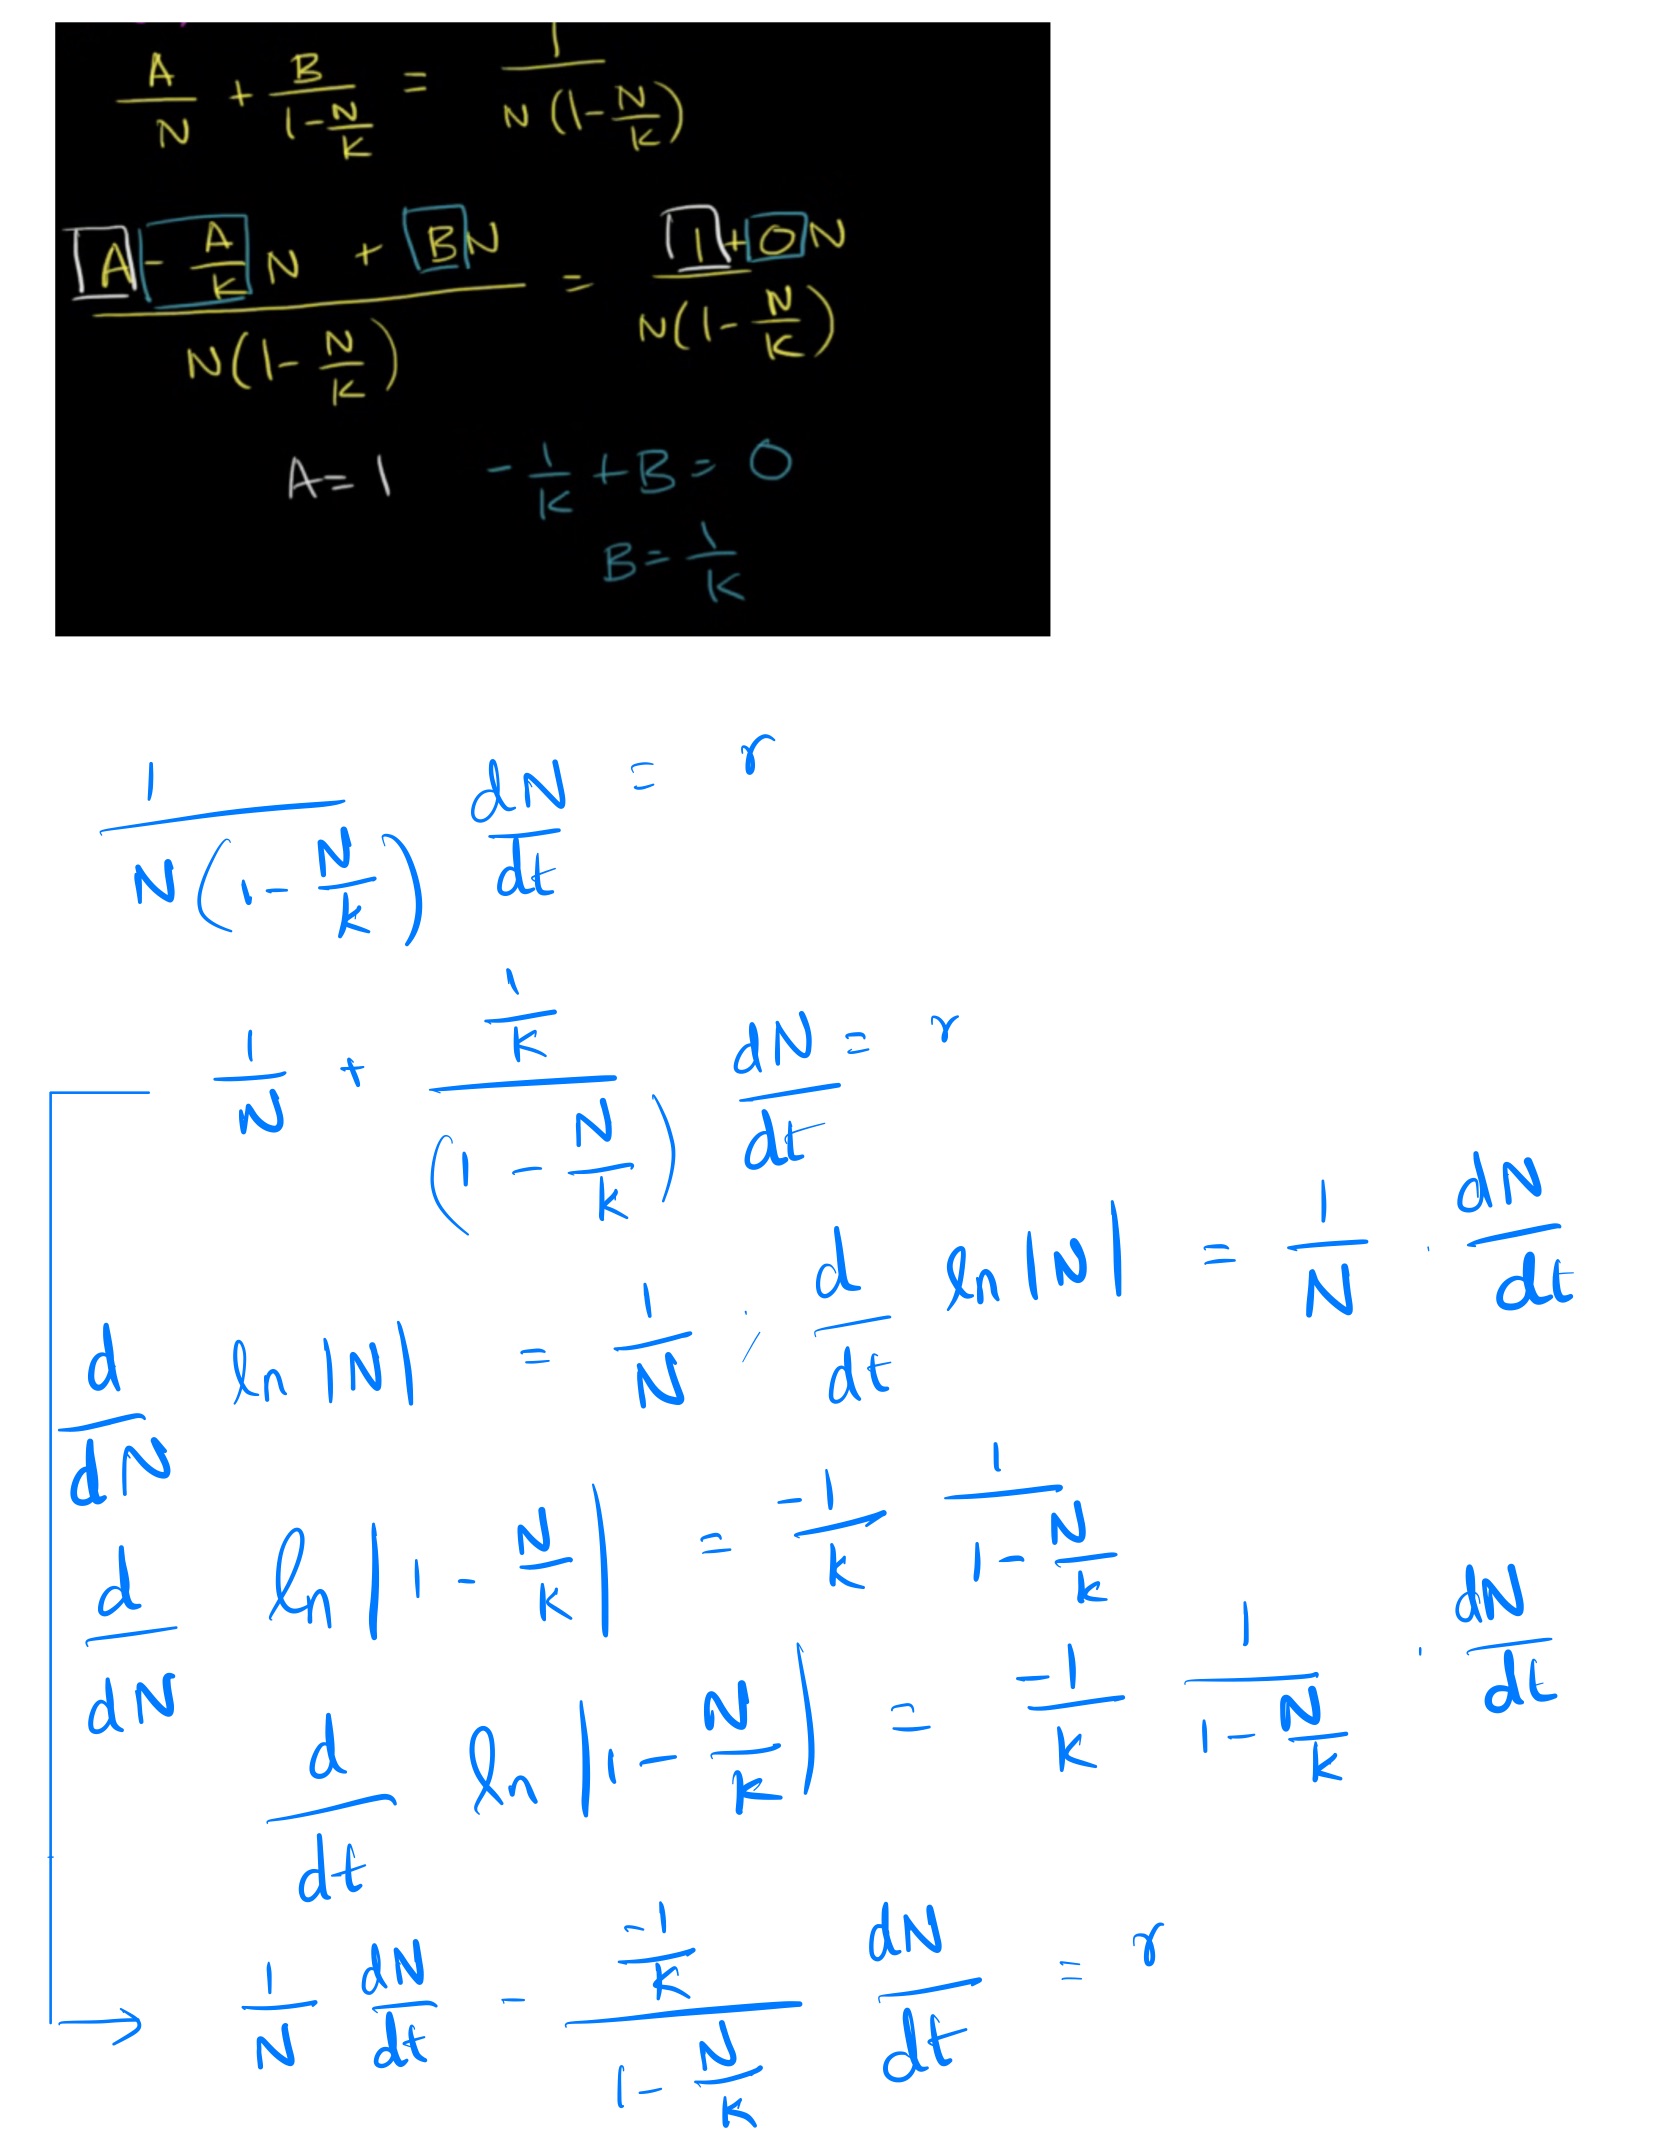 A/N + B/(1 - N/K) = 1/(N(1 - N/K))
(A - (A/K)N + BN)/(N(1 - N/K)) = (1 + 0N)/(N(1 - N/K))
A = 1    -1/K + B = 0
B = 1/K
1/(N(1 - N/K)) dN/dt = r
1/N + (1/K)/(1 - N/K) dN/dt = r
d/dN ln|N| = 1/N ; d/dt ln|N| = 1/N · dN/dt
d/dN ln|1 - N/K| = -1/K 1/(1 - N/K)
d/dt ln|1 - N/K| = -1/K 1/(1 - N/K) · dN/dt
→ 1/N dN/dt - (-1/K)/(1 - N/K) dN/dt = r